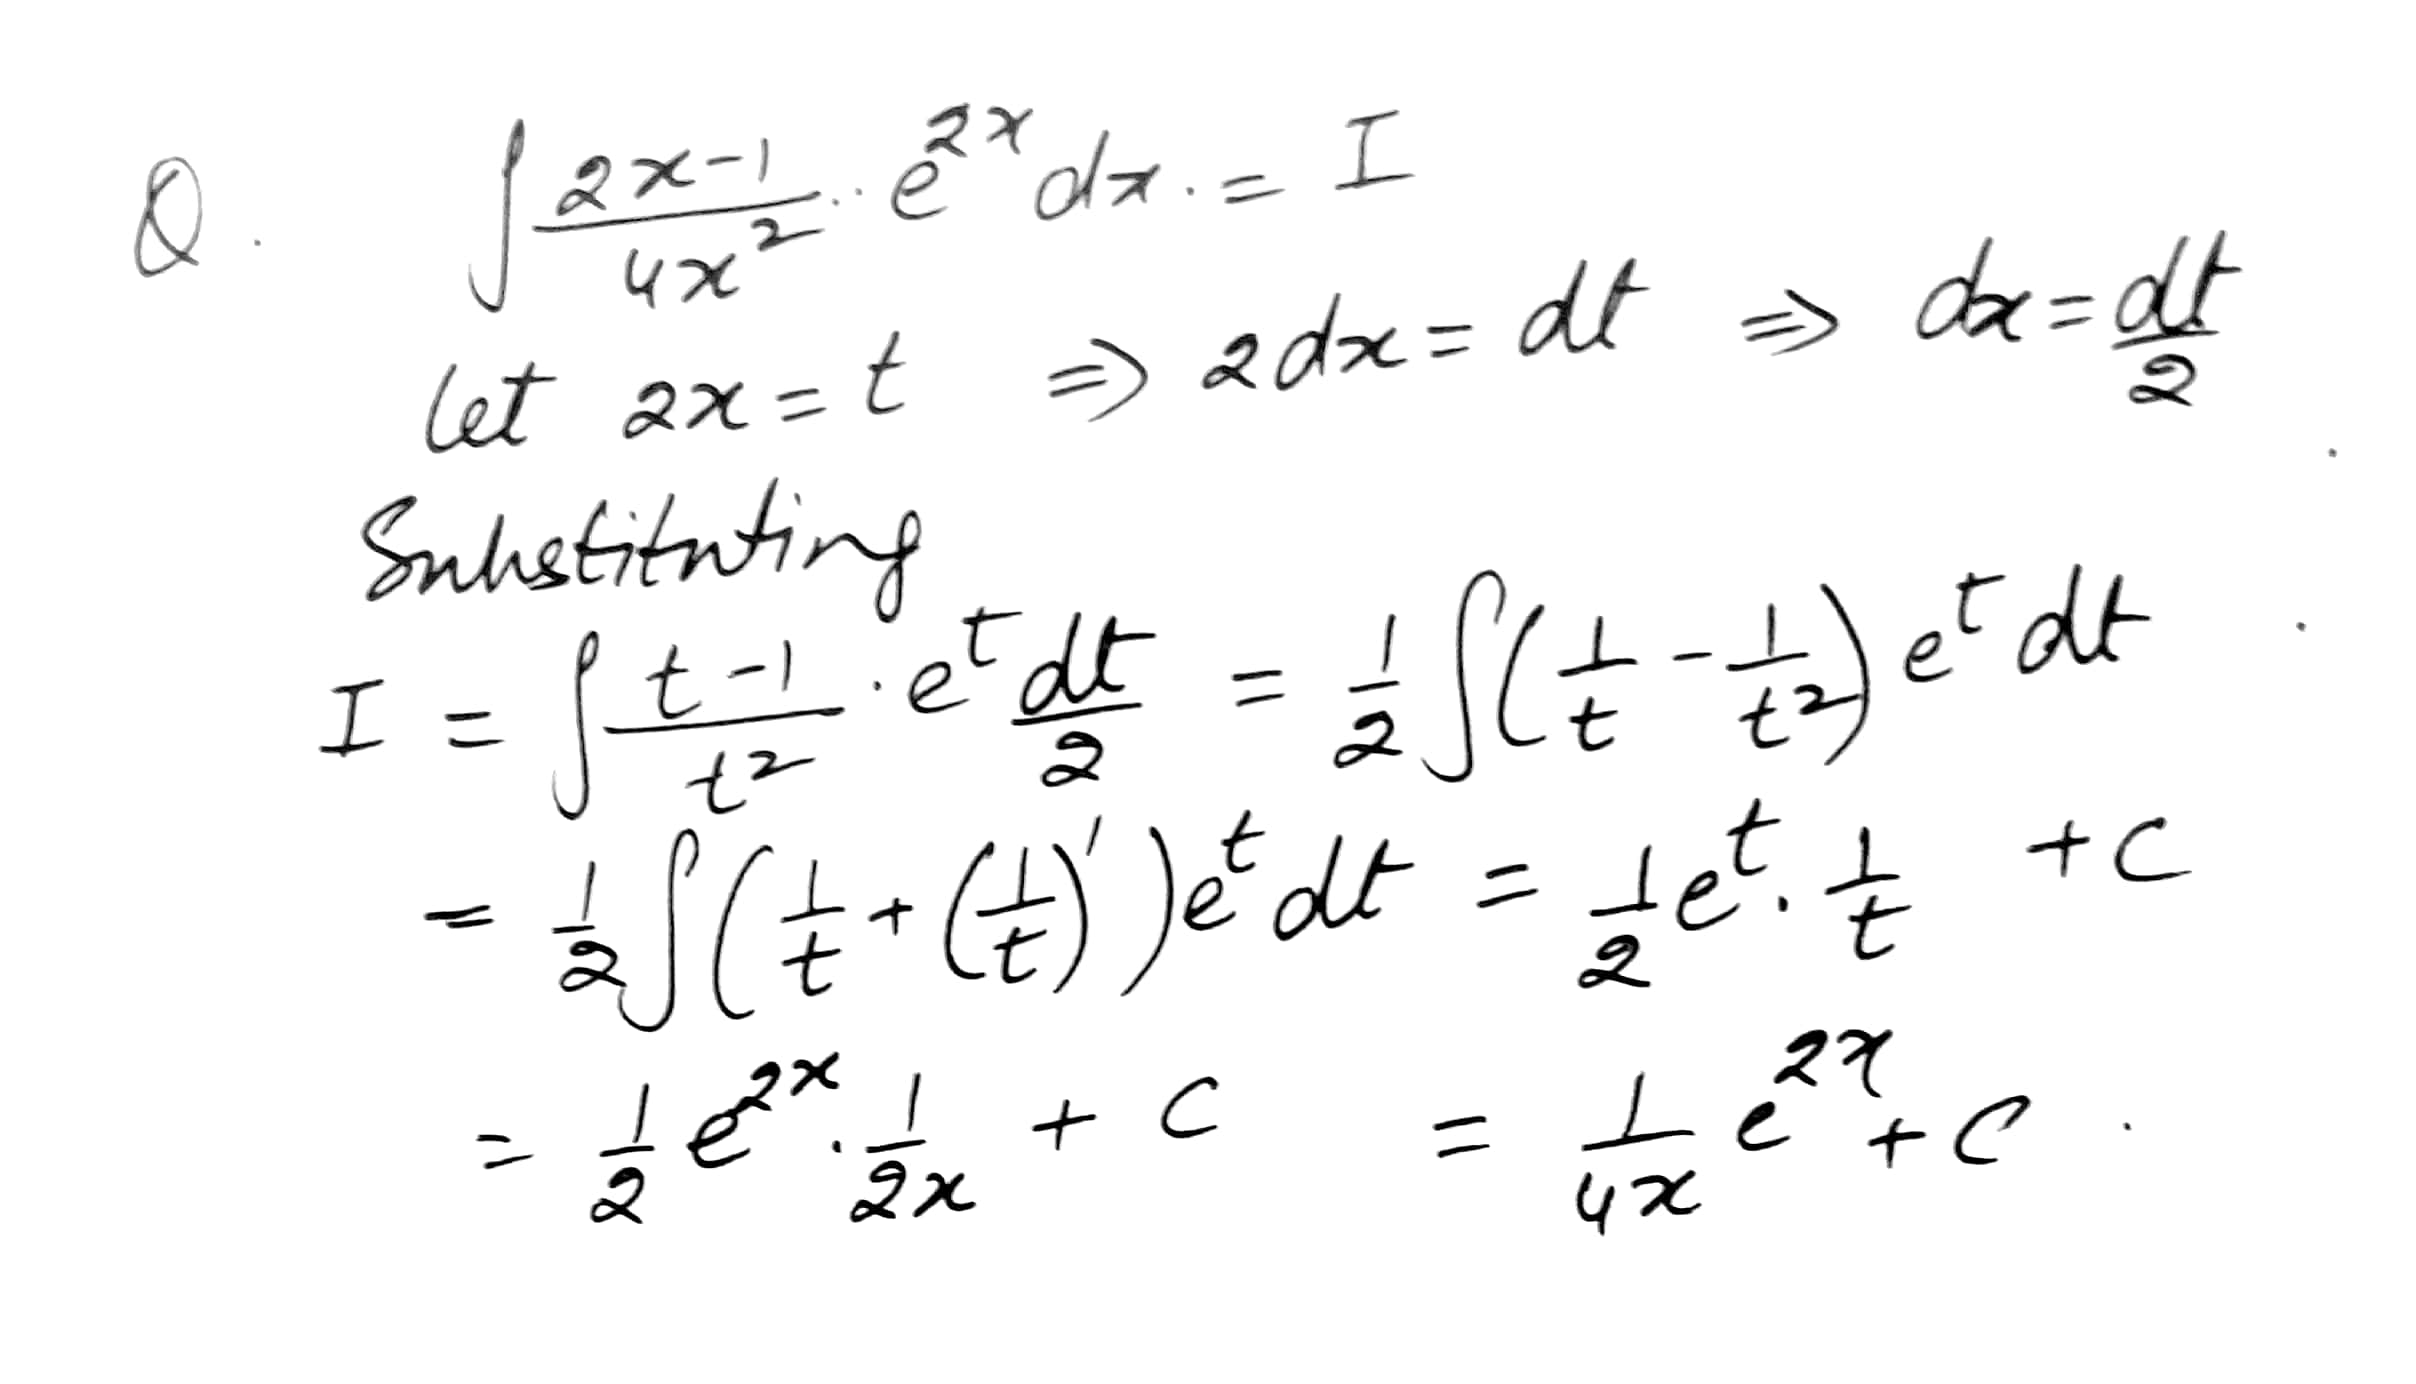 Q. ∫ (2x-1)/(4x²) · e^(2x) dx. = I
Let 2x = t ⇒ 2dx = dt ⇒ dx = dt/2
Substituting
I = ∫ (t-1)/t² · e^t dt/2 = 1/2 ∫ (1/t - 1/t²) e^t dt
= 1/2 ∫ (1/t + (1/t)') e^t dt = 1/2 e^t · 1/t + C
= 1/2 e^(2x) · 1/(2x) + C = 1/(4x) e^(2x) + C.